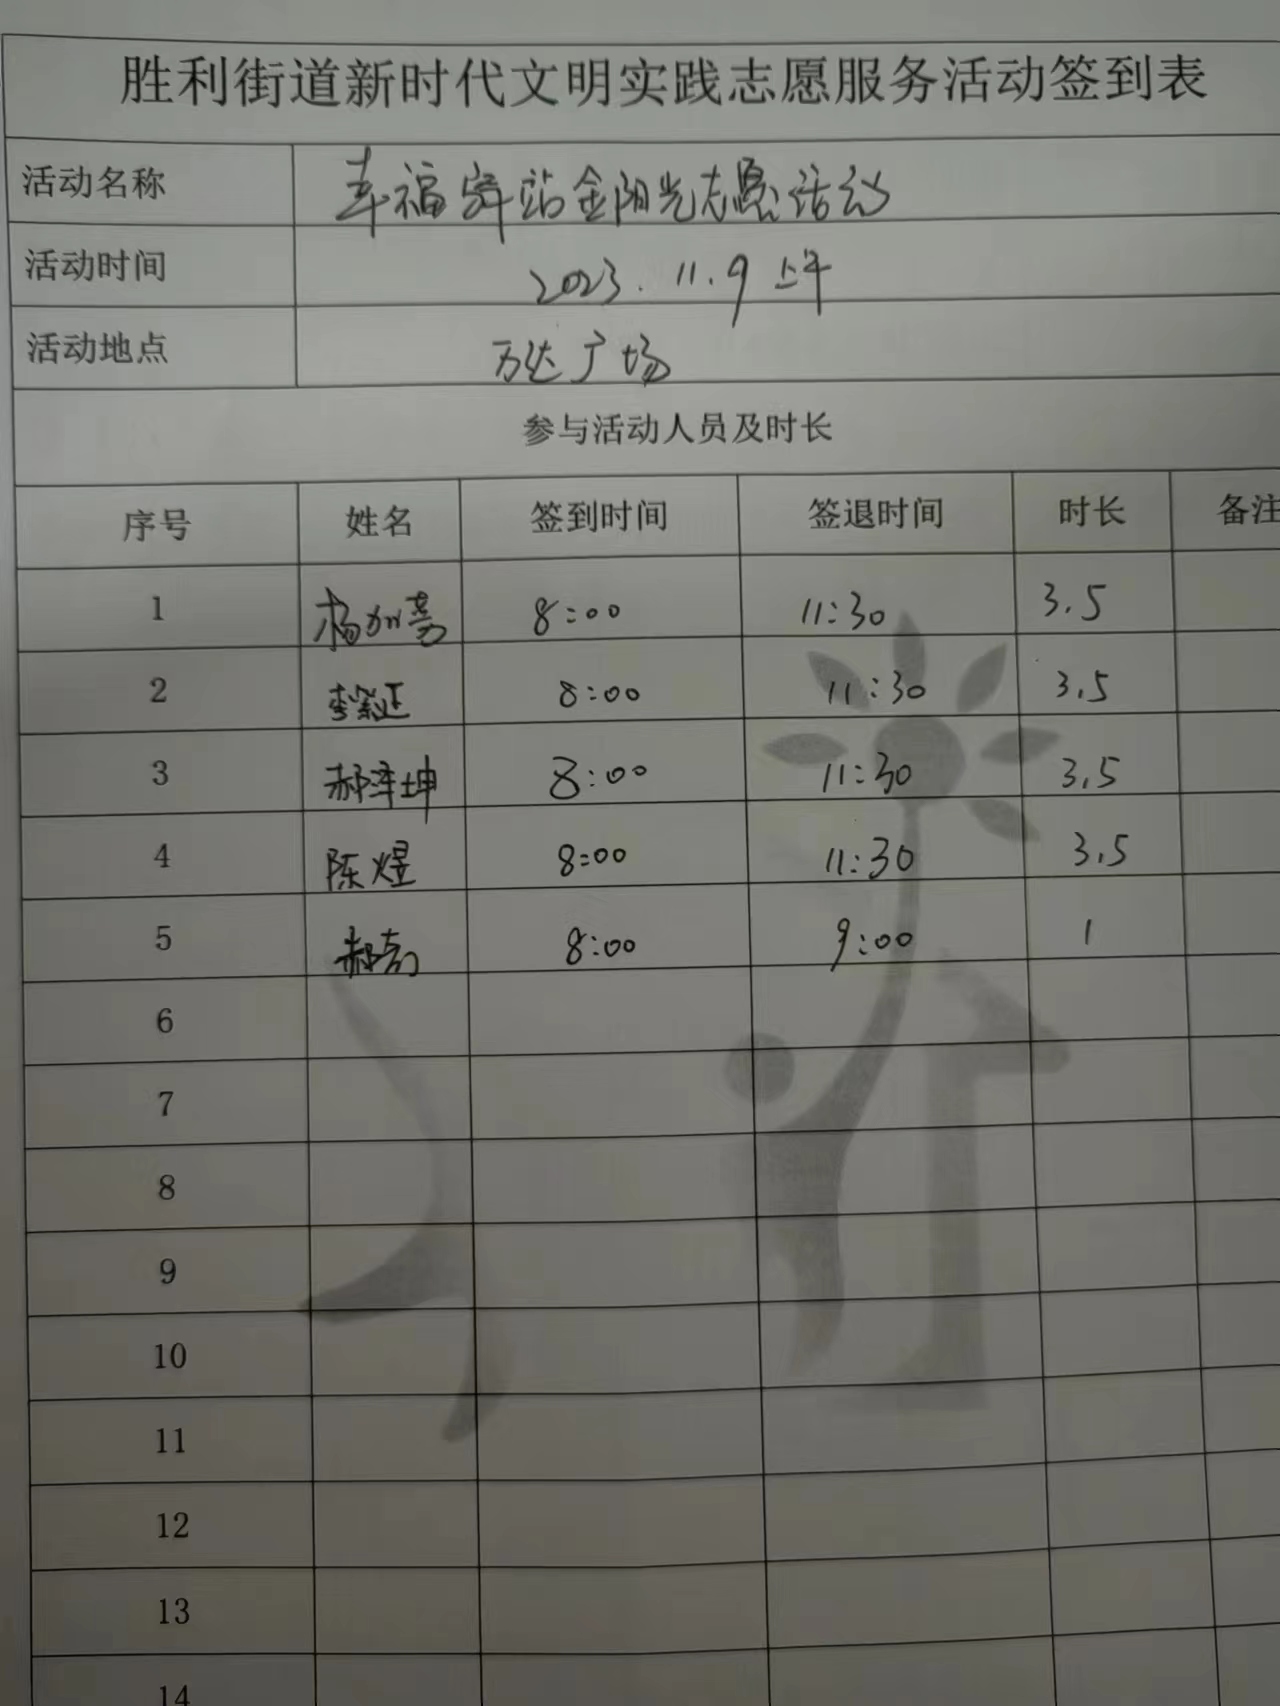 胜利街道新时代文明实践志愿服务活动签到表
活动名称 幸福驿站金阳光志愿活动
活动时间 2023.11.9 上午
活动地点 万达广场
参与活动人员及时长
序号 姓名 签到时间 签退时间 时长 备注
1 8:00 11:30 3.5
2 8:00 11:30 3.5
3 郝泽坤 8:00 11:30 3.5
4 陈煜 8:00 11:30 3.5
5 8:00 9:00 1
6
7
8
9
10
11
12
13
14